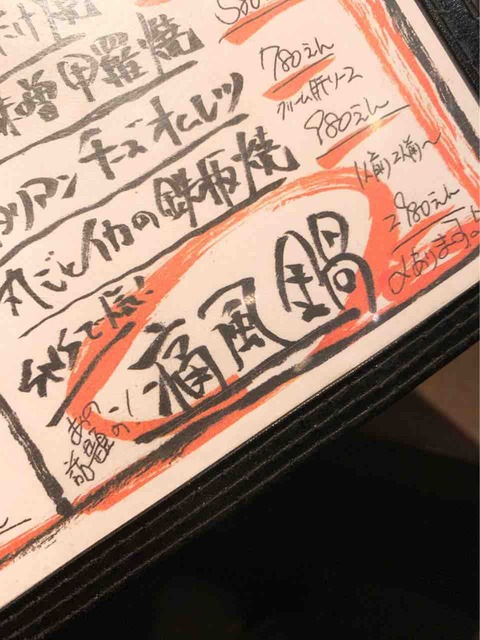 味噌甲羅焼
780えん
タリアンチーズオムレツ
クリーム肝ソース
980えん
丸ごとイカの鉄板焼
1人前 2人前〜
2980えん
SNSで人気!
あの
話題の!
痛風鍋
あります。